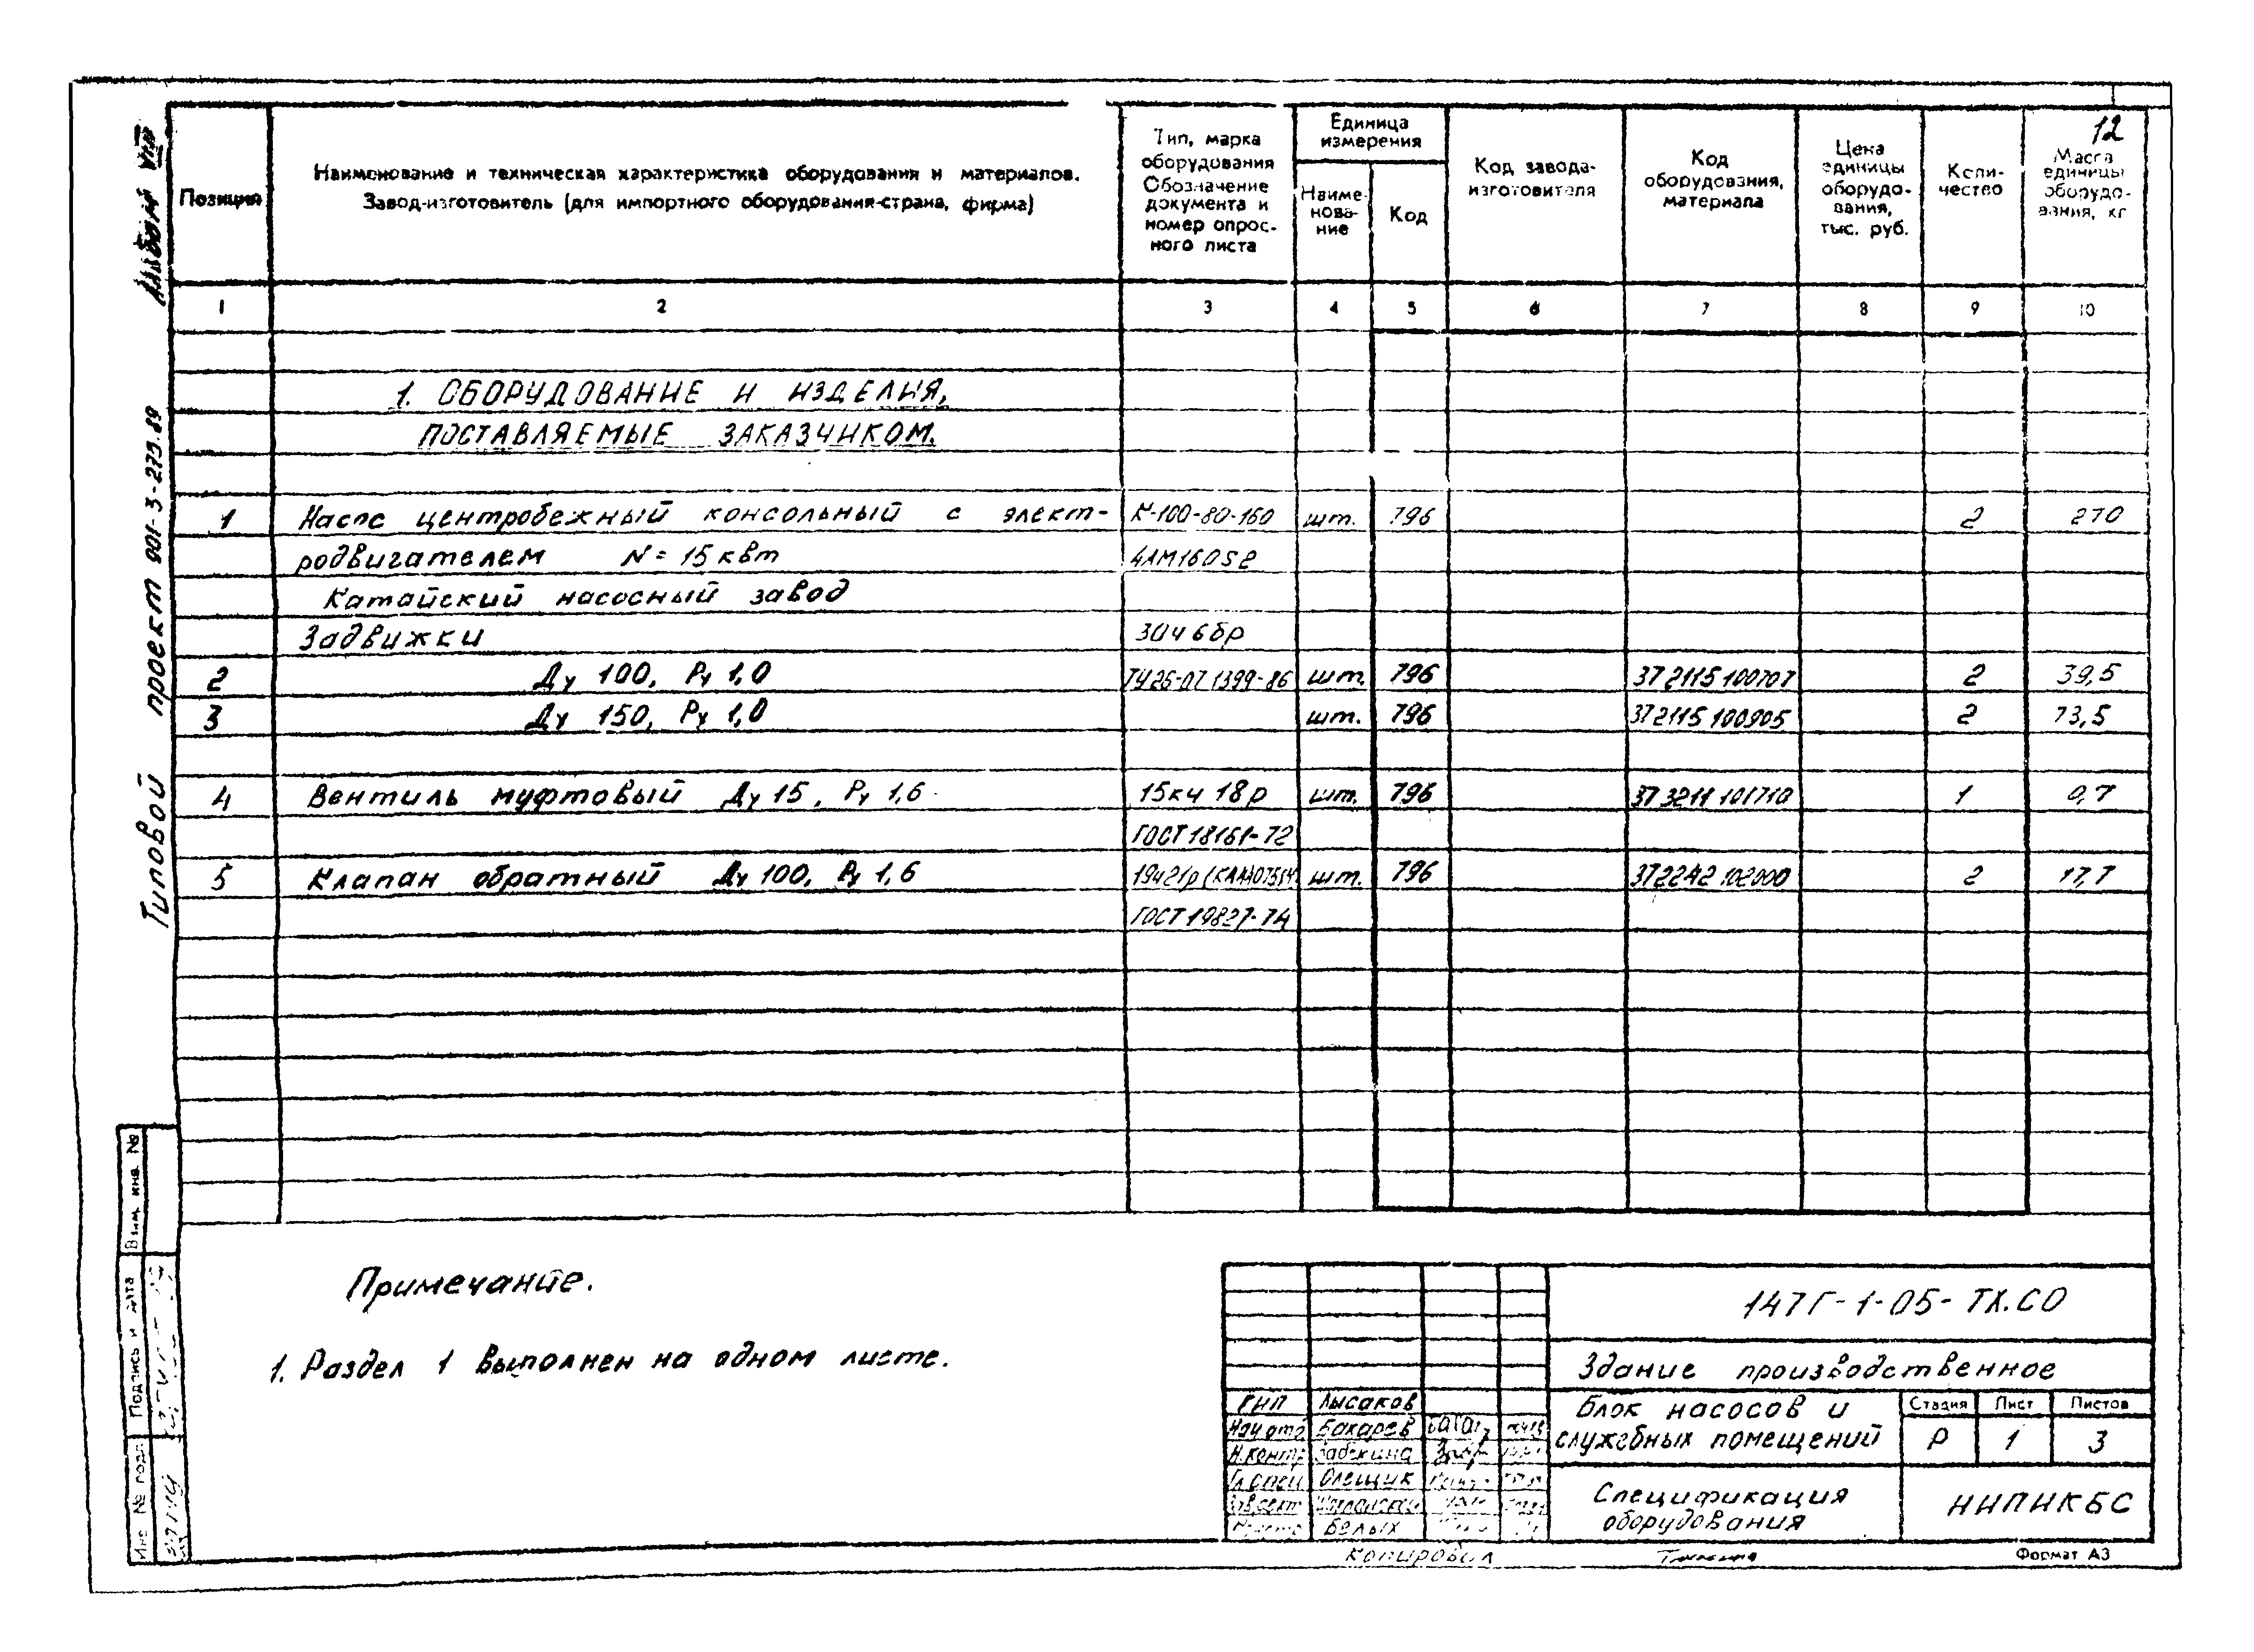 12
Альбом VIII
Типовой проект 901-3-273.89
Позиция
Наименование и техническая характеристика оборудования и материалов.
Завод-изготовитель (для импортного оборудования-страна, фирма)
Тип, марка
оборудования
Обозначение
документа и
номер опрос-
ного листа
Единица
измерения
Наиме-
нова-
ние
Код
Код завода-
изготовителя
Код
оборудования,
материала
Цена
единицы
оборудо-
вания,
тыс. руб.
Коли-
чество
Масса
единицы
оборудо-
вания, кг
1 2 3 4 5 6 7 8 9 10
1. ОБОРУДОВАНИЕ И ИЗДЕЛИЯ,
ПОСТАВЛЯЕМЫЕ ЗАКАЗЧИКОМ.
1 Насос центробежный консольный с элект- К-100-80-160 шт. 796 2 270
родвигателем N = 15 квт 4АМ160S2
Катайский насосный завод
Задвижки 30ч6бр
2 Ду 100, Ру 1,0 ТУ26-07 1399-86 шт. 796 37 2115 100707 2 39,5
3 Ду 150, Ру 1,0 шт. 796 37 2115 100905 2 73,5
4 Вентиль муфтовый Ду 15, Ру 1,6 15кч 18р шт. 796 37 3211 101710 1 0,7
ГОСТ 18161-72
5 Клапан обратный Ду 100, Ру 1,6 19ч21р шт. 796 372242 102000 2 17,7
ГОСТ 19827-74
Примечание.
1. Раздел 1 выполнен на одном листе.
Взам. инв. №
Подпись и дата
Инв. № подл.
147Г-1-05-ТХ.СО
Здание производственное
ГИП Лысаков
Нач отд Бахарев
Н.контр Забекина
Гл спец Олещик
Белых
Блок насосов и
служебных помещений
Стадия Лист Листов
Р 1 3
Спецификация
оборудования
НИПИКБС
Копировал
Формат А3